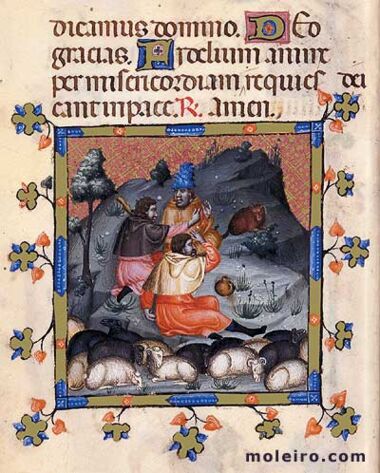 dicamus domino. Deo
gracias. Fidelium anime
per misericordiam dei requies
cant in pace. R. Amen.
moleiro.com